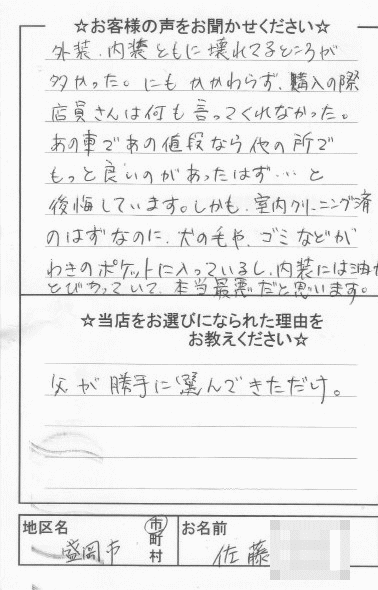 ☆お客様の声をお聞かせください☆
外装、内装ともに壊れてるところが
多かった。にもかかわらず、購入の際
店員さんは何も言ってくれなかった。
あの車であの値段なら他の所で
もっと良いのがあったはず…と
後悔しています。しかも、室内クリーニング済
のはずなのに、犬の毛や、ゴミなどが
わきのポケットに入っているし、内装には油が
とびちっていて、本当最悪だと思います。
☆当店をお選びになられた理由を
お教えください☆
父が勝手に選んできただけ。
地区名 市町村 お名前
盛岡市 佐藤